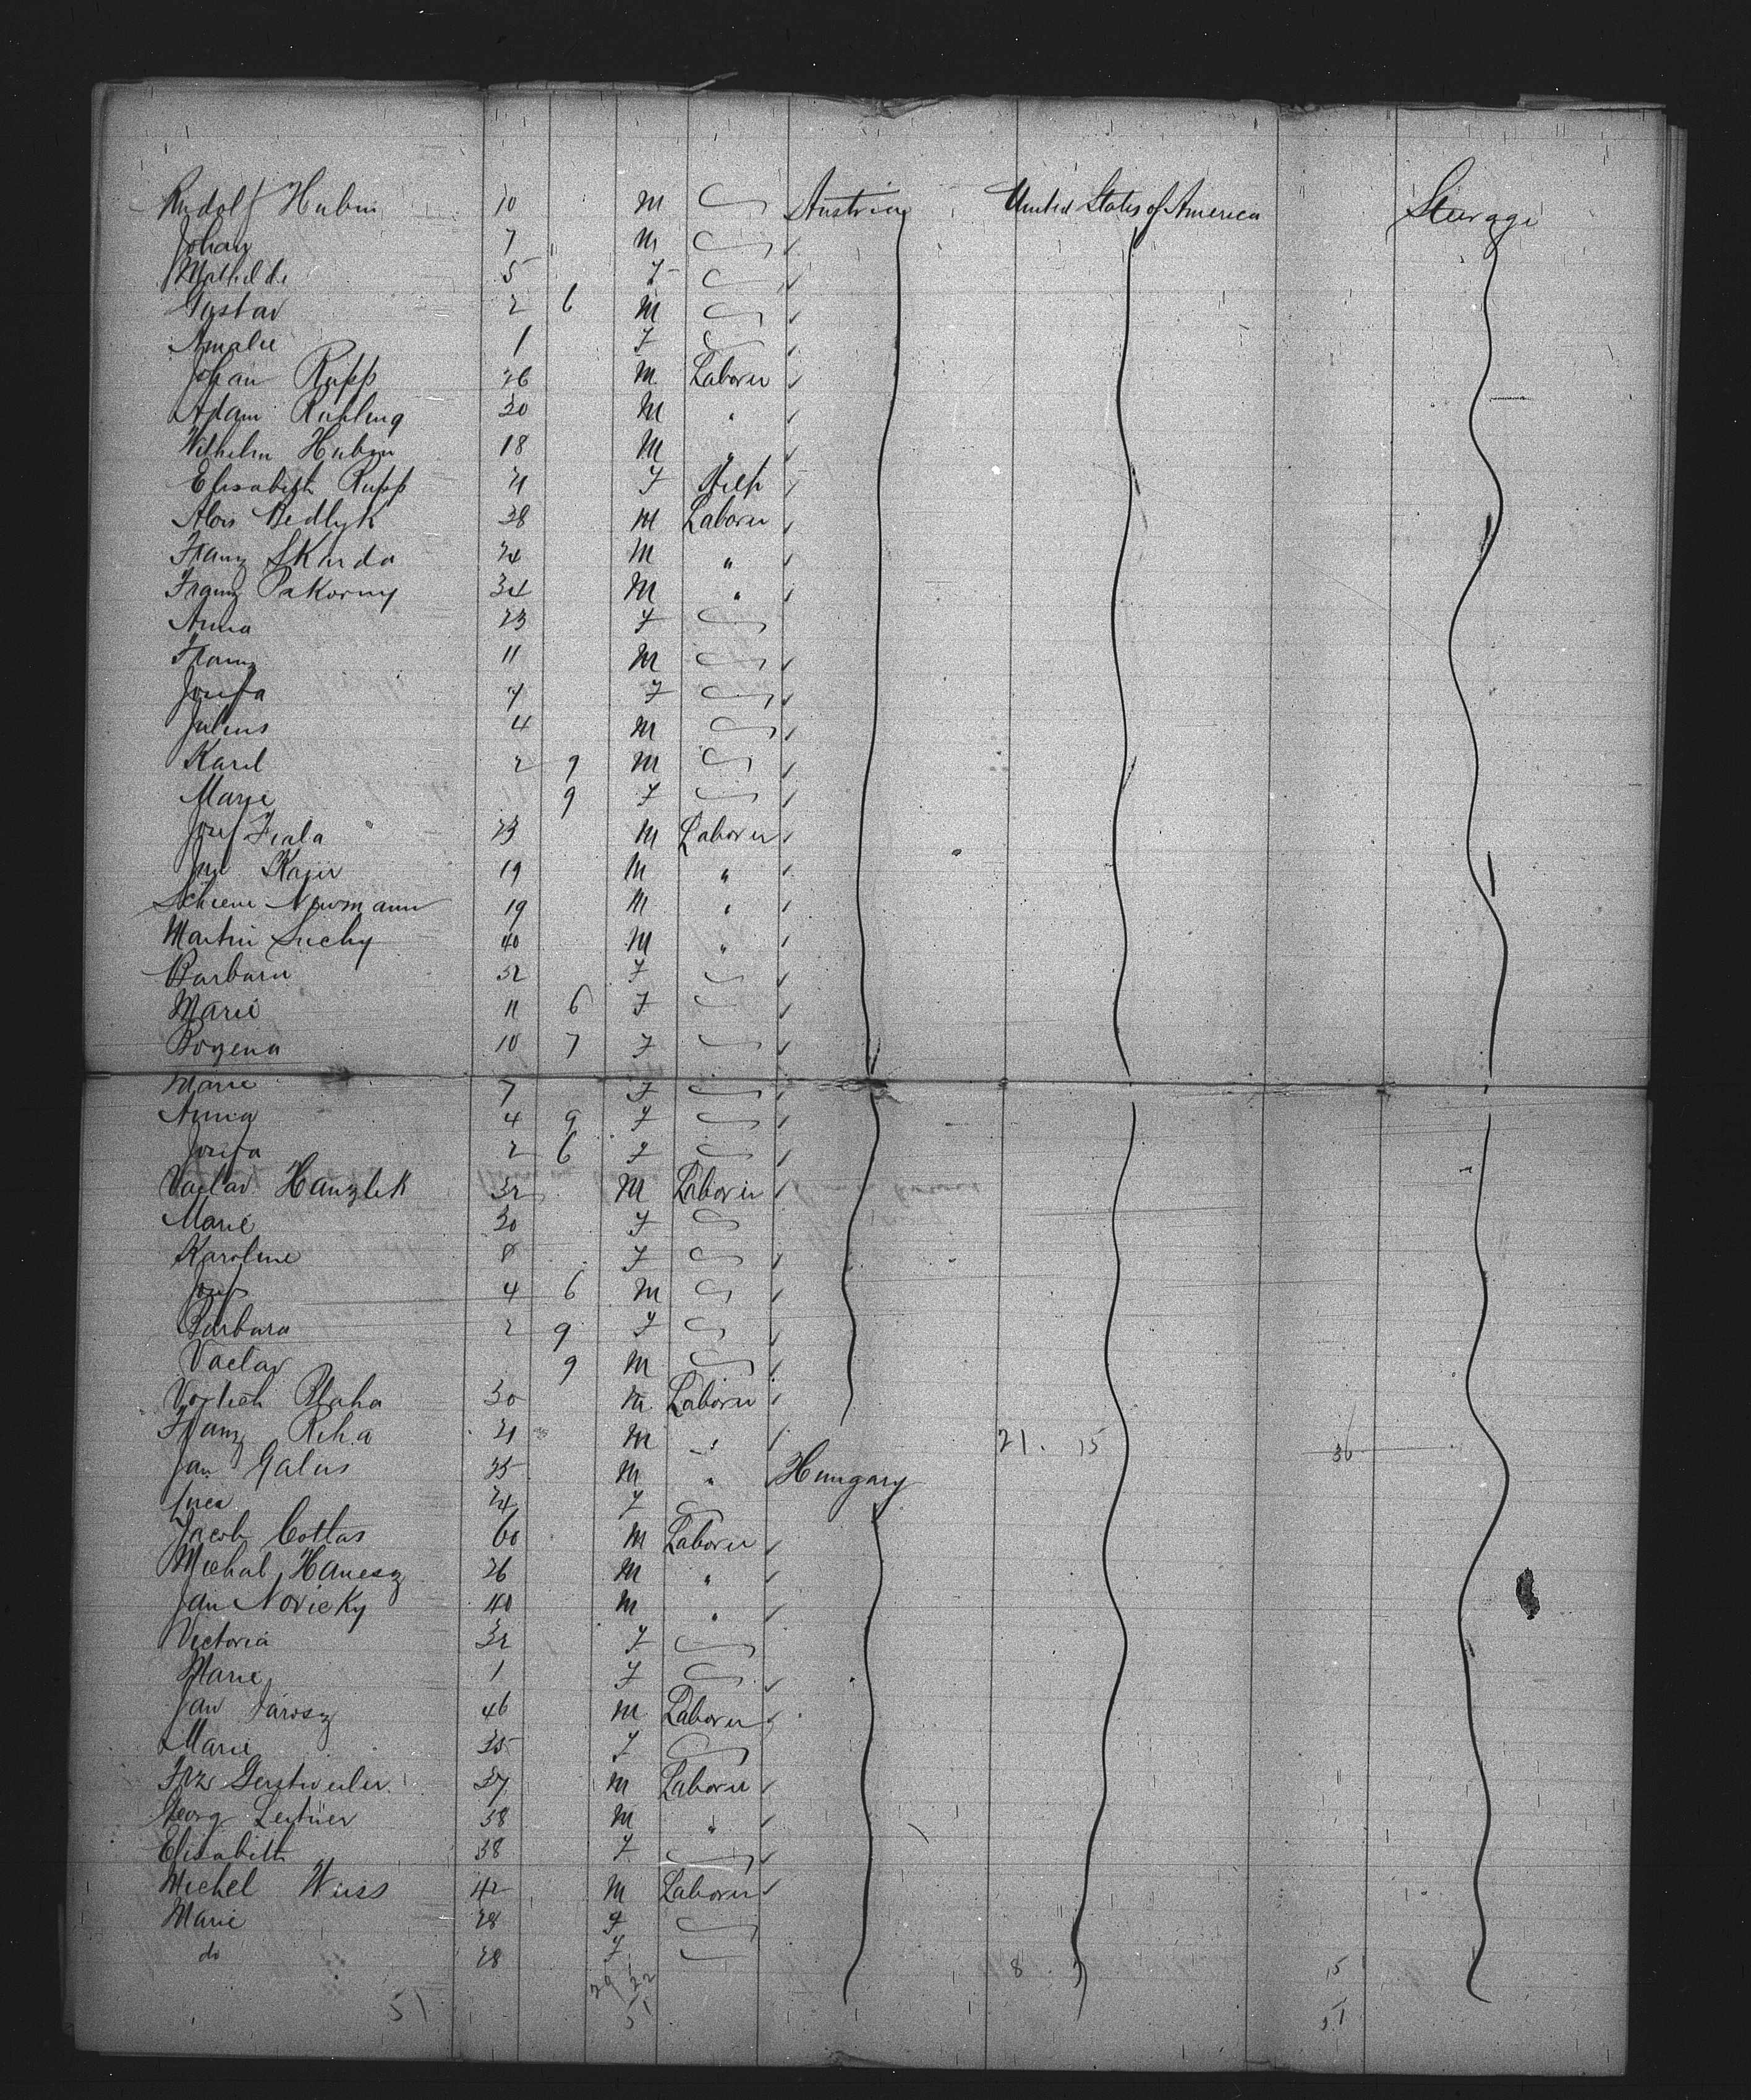 Rudolf Huber 10 M Austria United States of America Steerage
Johan 7 " M
Mathilde 5 F
Gustav 2 6 M
Amalie 1 F
Johan Rupp 26 M Laborer
Adam Ruhling 30 M "
Wilhelm Huber 18 M "
Elisabeth Rupp 21 F
Alois Bedlyk 38 M Laborer
Franz Skurda 24 M "
Franz Pakorny 34 M "
Anna 23 F
Franz 11 M
Josefa 7 F
Julius 4 M
Karel 2 9 M
Marie 9 F
Josef Fiala 23 M Laborer
19 M "
Newmann 19 M "
Martin Suchy 40 M "
Barbara 32 F
Marie 11 6 F
Bozena 10 7 F
Marie 7 F
Anna 4 9 F
Josefa 2 6 F
Vaclav Hanzlik 32 M Laborer
Marie 30 F
Karoline 8 F
Josef 4 6 M
Barbara 2 9 F
Vaclav 9 M
Vojtech Blaha 30 M Laborer
Franz Riha 21 M " 21 . 15 36
Jan Galus 25 M " Hungary
24 F
Jacob Cottas 60 M Laborer
Michal Hanesz 26 M "
Jan Novicky 40 M "
Victoria 32 F
Marie 1 F
Jan Jarosz 46 M Laborer
Marie 35 F
Frz Gerstweiler 37 M Laborer
Georg Leitner 38 M "
Elisabeth 38 F
Michel Weiss 42 M Laborer
Marie 28 F
do 28 F 8 . 7 15
29/22
51 51 51